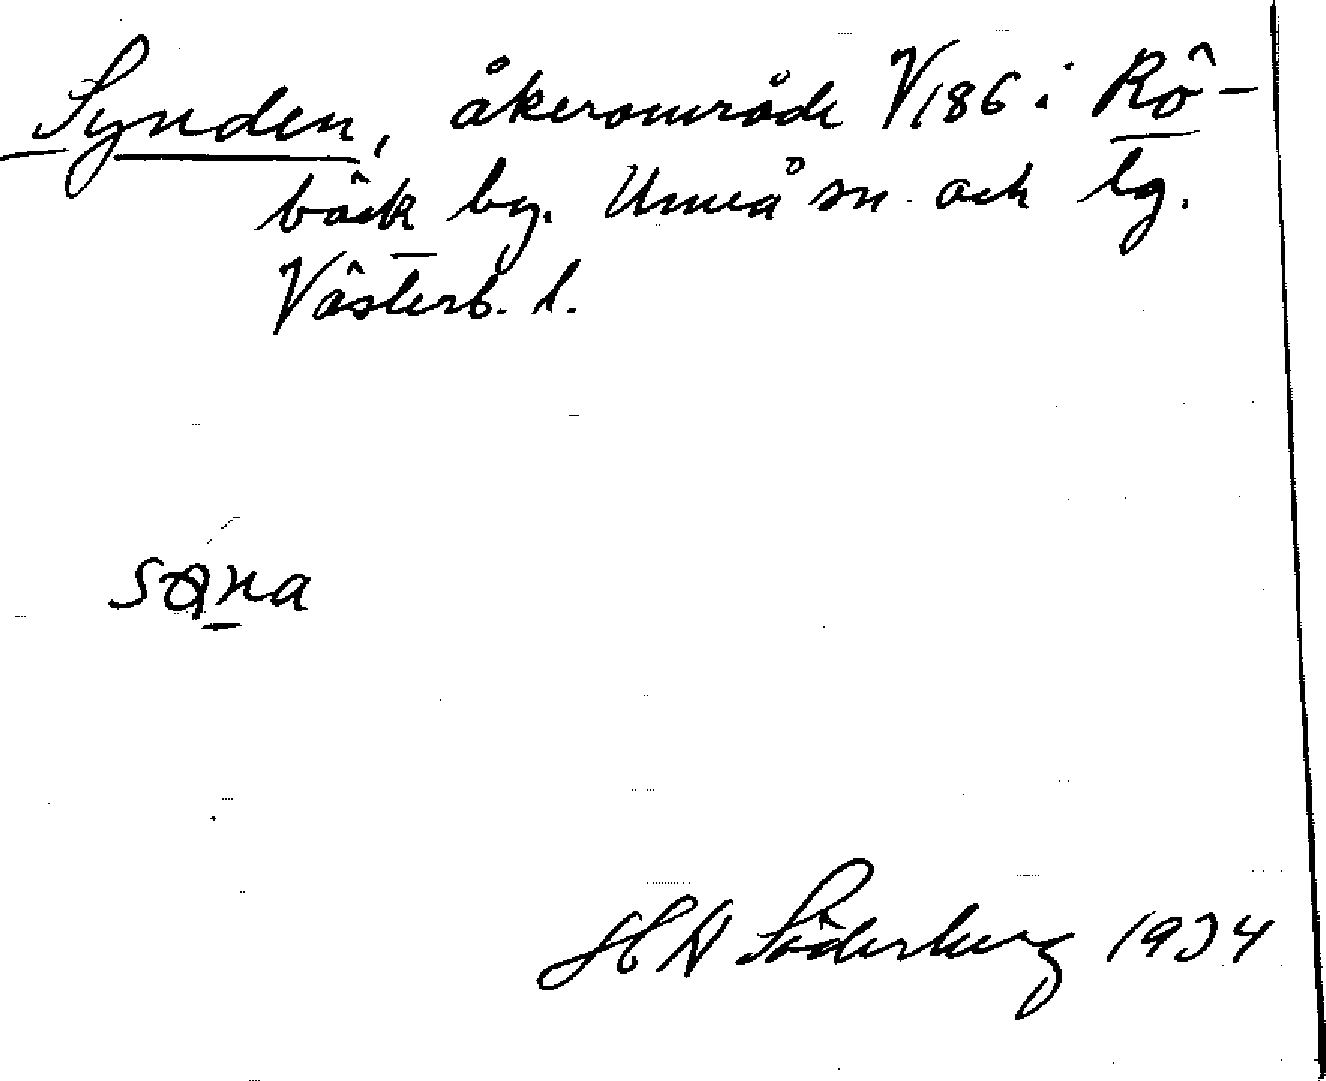 Synden, åkerområde V186 i Rö-
bäck by. Umeå sn och lg.
Västerb. l.
Söderberg 1934